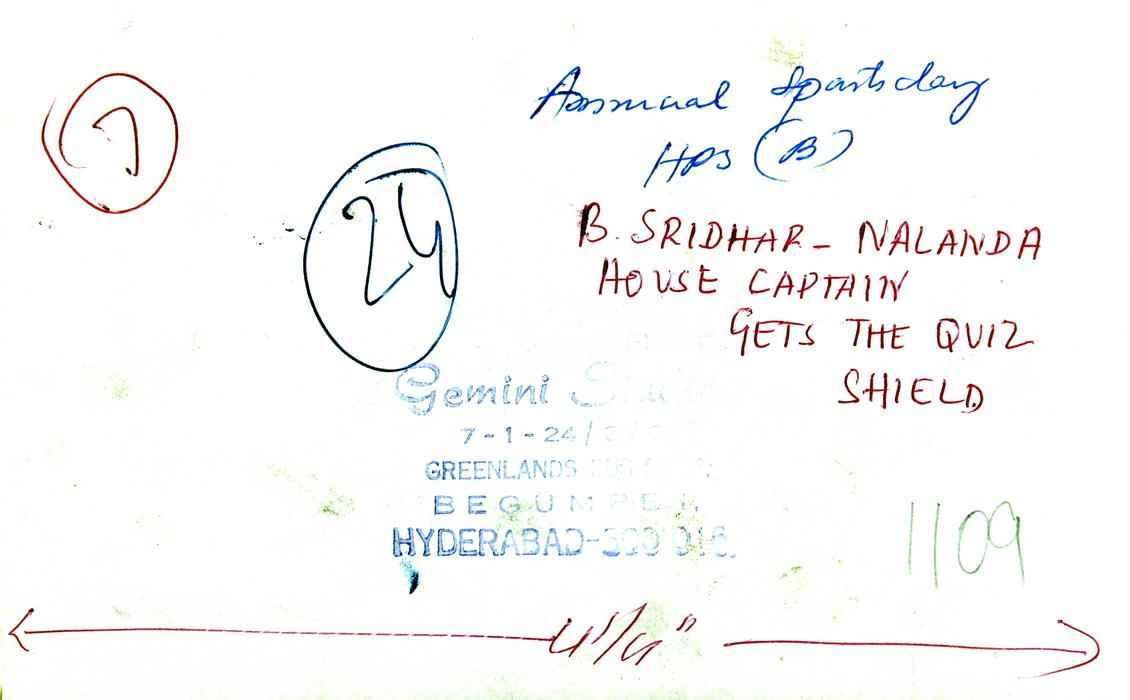 7
Annual Sportsday
HPS (B)
24
B. SRIDHAR - NALANDA
HOUSE CAPTAIN
GETS THE QUIZ
SHIELD
Gemini
7-1-24/
GREENLANDS
BEGUMPET
HYDERABAD-500 016.
1109